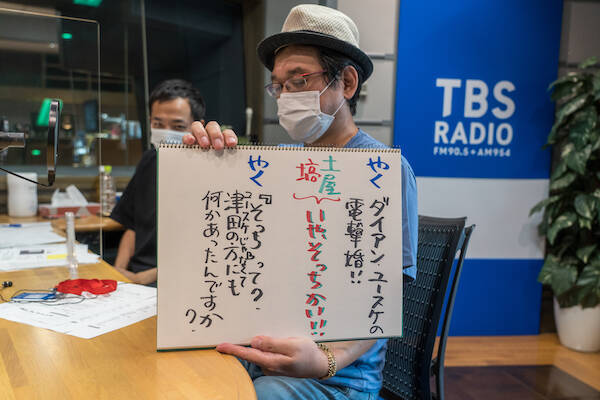 やく
ダイアン、ユースケの
電撃婚!!
土屋
塙
いや、そっちかい!!
やく
『そっちって?
ユースケじゃなくて
津田の方にも
何かあったんですか
?
TBS
RADIO
FM90.5+AM954